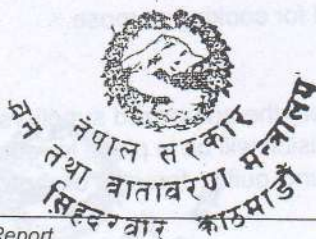 नेपाल सरकार
वन तथा वातावरण मन्त्रालय
सिंहदरवार काठमाडौं
Report